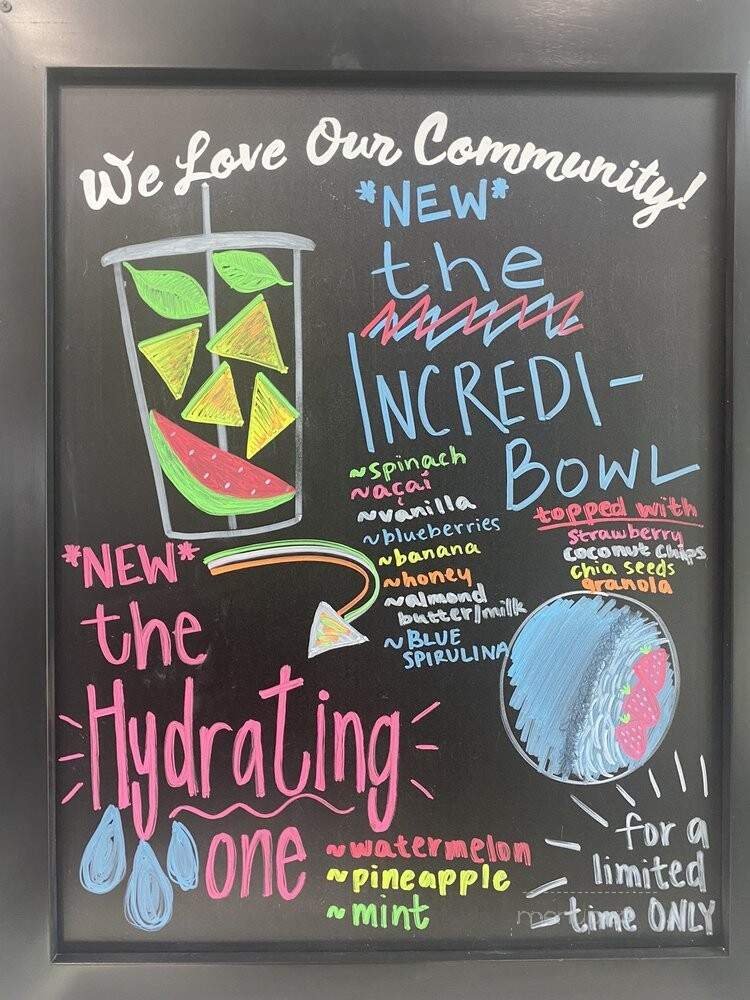 We Love Our Community!
*NEW*
the
INCREDI-
BOWL
~spinach
~açaí
~vanilla
~blueberries
~banana
~honey
~almond
butter/milk
~BLUE
SPIRULINA
topped with
strawberry
coconut chips
chia seeds
granola
*NEW*
the
Hydrating
one
~watermelon
~pineapple
~mint
for a
limited
time ONLY